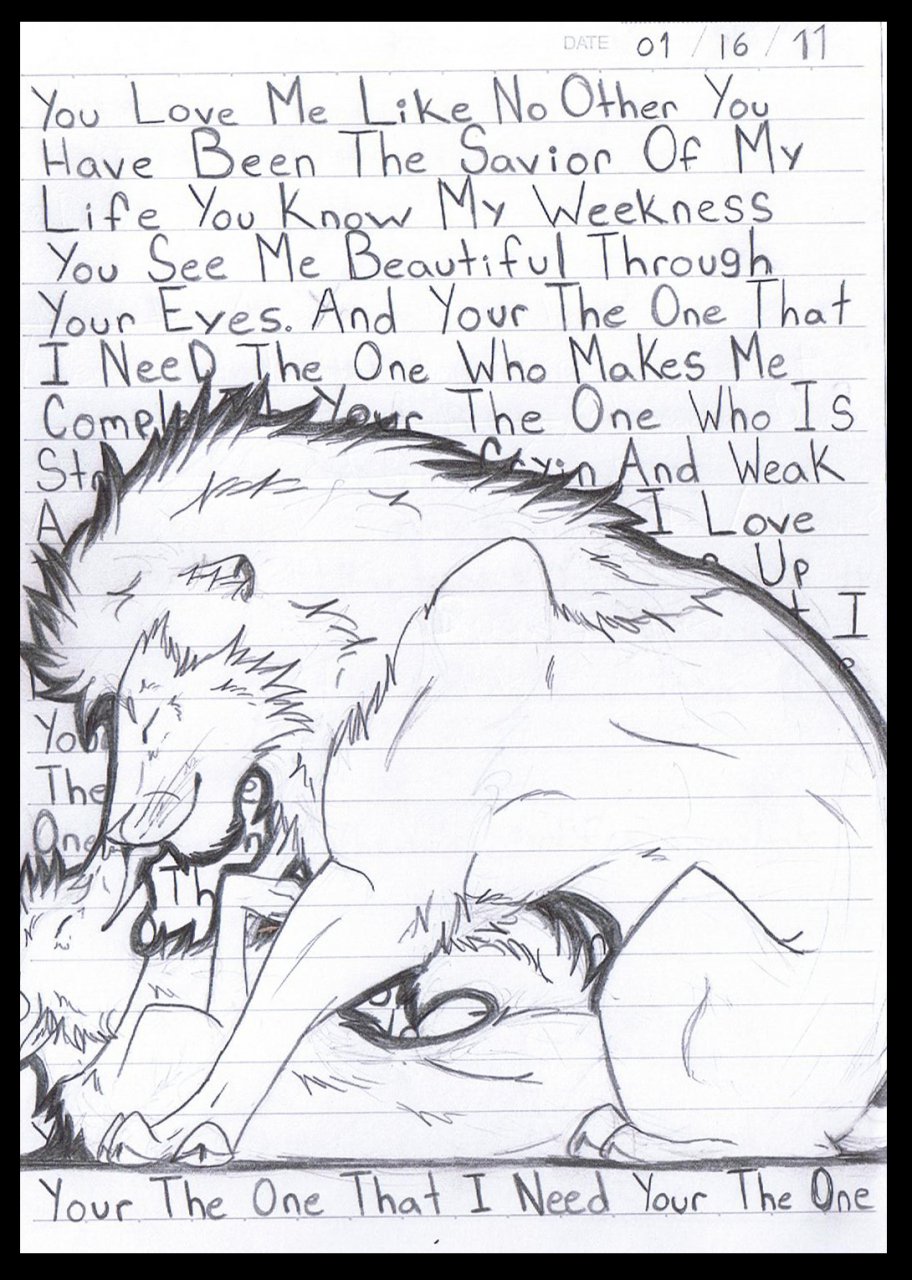 DATE 01 / 16 / 11
You Love Me Like No Other You
Have Been The Savior Of My
Life You Know My Weekness
You See Me Beautiful Through
Your Eyes. And Your The One That
I NeeD The One Who Makes Me
Your The One Who Is
And Weak
I Love
Up
I
The
One
Your The One That I Need Your The One